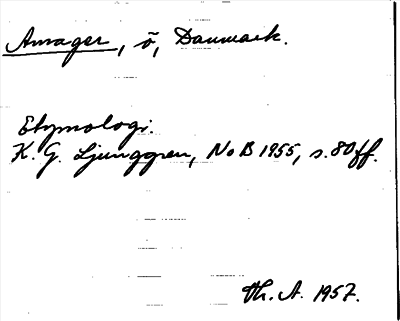 Amager, ö, Danmark.
Etymologi.
K. G. Ljunggren, NoB 1955, s. 80 ff.
Th. A. 1957.